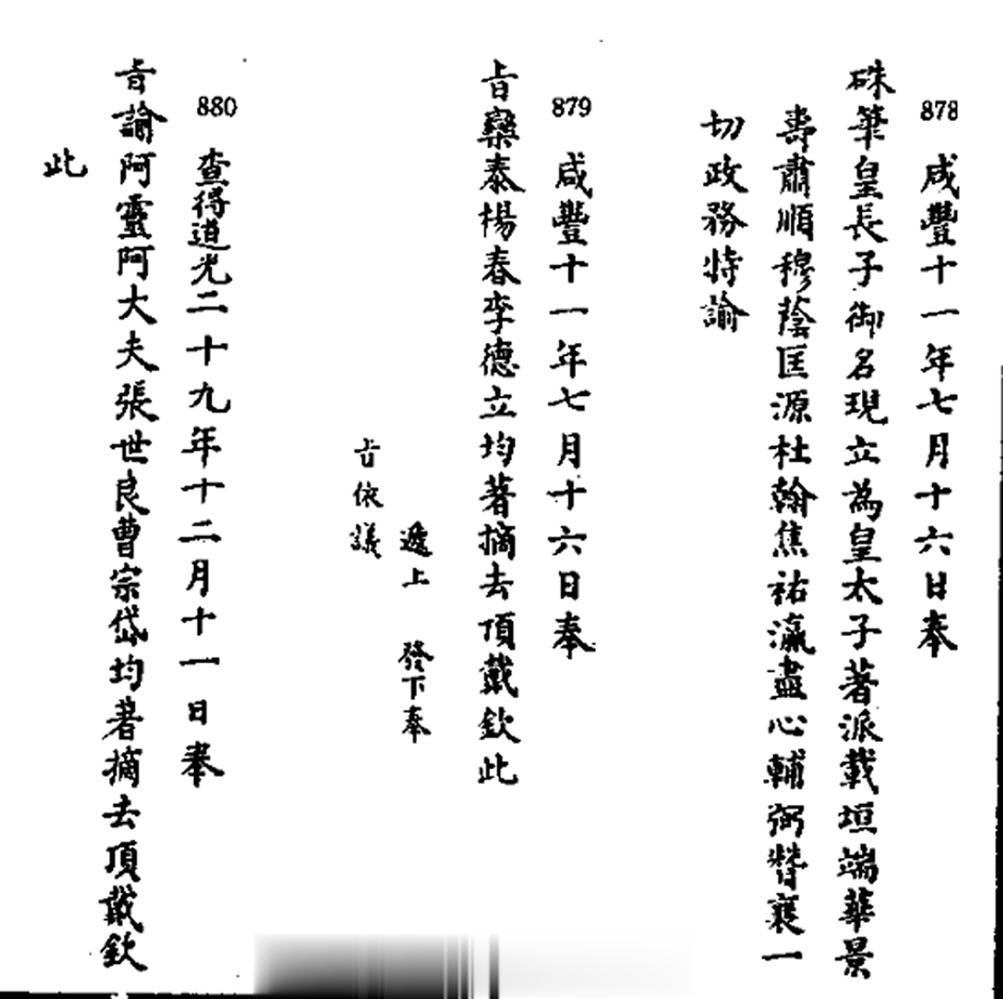 878 咸豐十一年七月十六日奉
硃筆皇長子御名現立為皇太子著派載垣端華景
壽肅順穆蔭匡源杜翰焦祐瀛盡心輔弼贊襄一
切政務特諭
879 咸豐十一年七月十六日奉
旨欒泰楊春李德立均著摘去頂戴欽此
遞上 發下奉
旨依議
880 查得道光二十九年十二月十一日奉
旨諭阿靈阿大夫張世良曹宗岱均著摘去頂戴欽
此